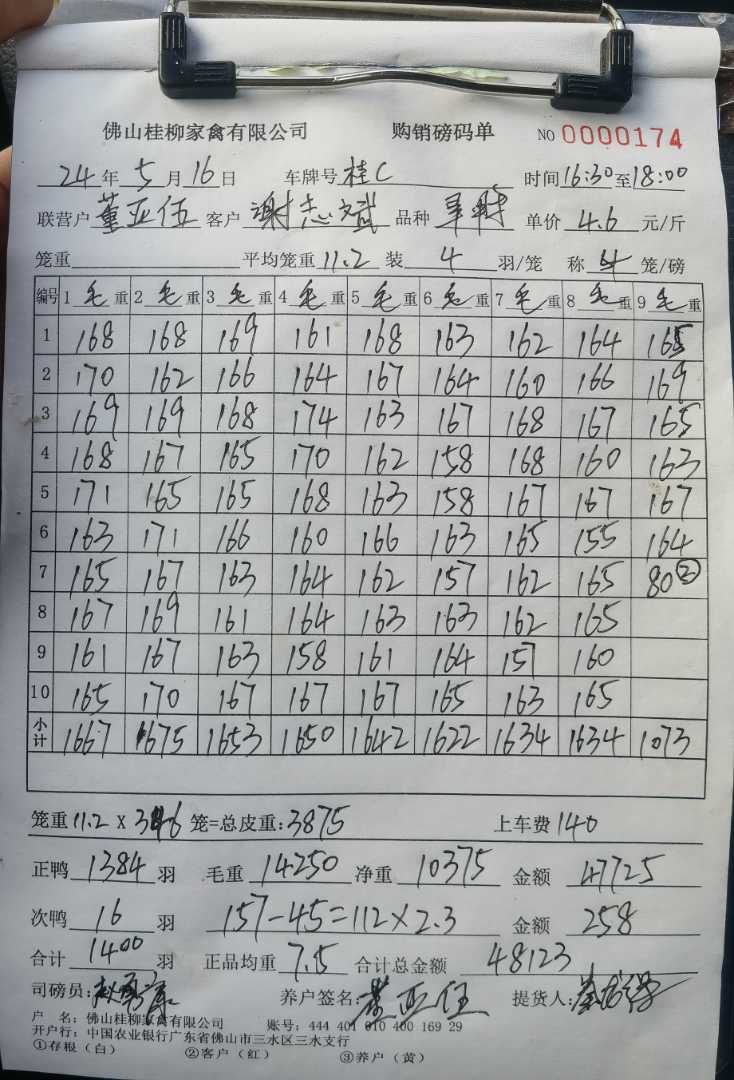 佛山桂柳家禽有限公司 购销磅码单 NO 0000174
24年5月16日 车牌号桂C 时间16:30至18:00
联营户董亚伍 客户谢志斌 品种 单价4.6元/斤
笼重 平均笼重11.2装4羽/笼 称4笼/磅
编号 1毛重 2毛重 3毛重 4毛重 5毛重 6毛重 7毛重 8毛重 9毛重
1 168 168 169 161 168 163 162 164 165
2 170 162 166 164 167 164 160 166 169
3 169 169 168 174 163 167 168 167 165
4 168 167 165 170 162 158 168 160 163
5 171 165 165 168 163 158 167 167 167
6 163 171 166 160 166 163 165 155 164
7 165 167 163 164 162 157 162 165 80②
8 167 169 161 164 163 163 162 165
9 161 167 163 158 161 164 157 160
10 165 170 167 167 167 165 163 165
小计 1667 1675 1653 1650 1642 1622 1634 1634 1073
笼重11.2×346笼=总皮重:3875 上车费140
正鸭1384羽 毛重14250净重10375 金额47725
次鸭16羽 157-45=112×2.3 金额258
合计1400羽 正品均重7.5合计总金额48123
司磅员: 养户签名:董亚伍 提货人:
户 名:佛山桂柳家禽有限公司 账号:444 401 010 400 169 29
开户行:中国农业银行广东省佛山市三水区三水支行
①存根(白) ②客户(红) ③养户(黄)